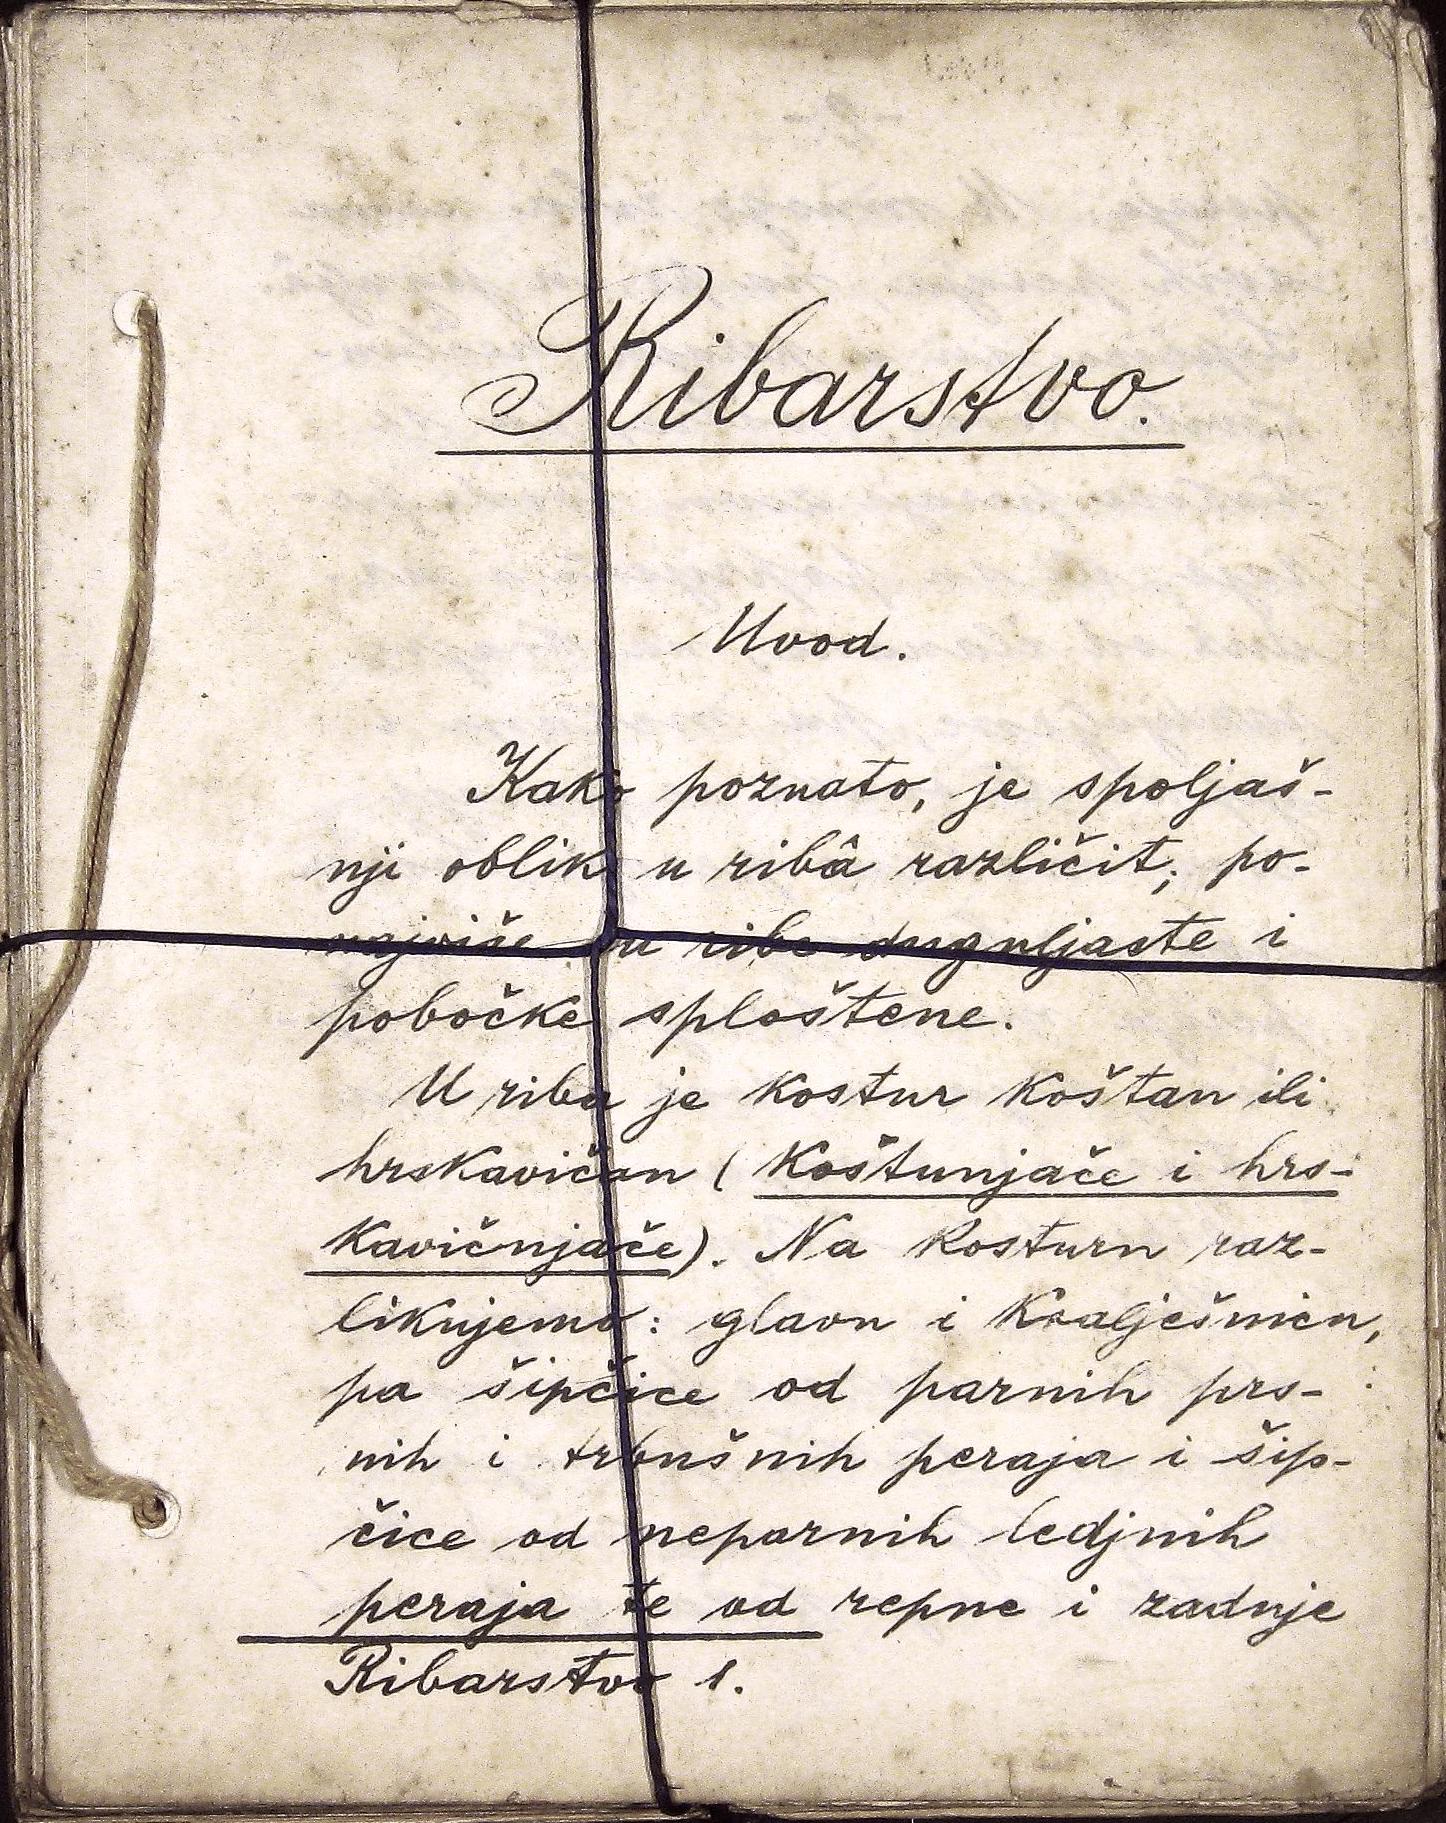 Ribarstvo.
Uvod.
Kako poznato, je spoljaš-
nji oblik u ribâ različit; po-
najviše su ribe duguljaste i
pobočke sploštene.
U riba je kostur koštan ili
hrskavičan (koštunjače i hrs-
kavičnjače). Na kosturu raz-
likujemo: glavu i kralješnicu,
pa šipčice od parnih prs-
nih i trbušnih peraja i šip-
čice od neparnih ledjnih
peraja te od repne i zadnje
Ribarstvo 1.